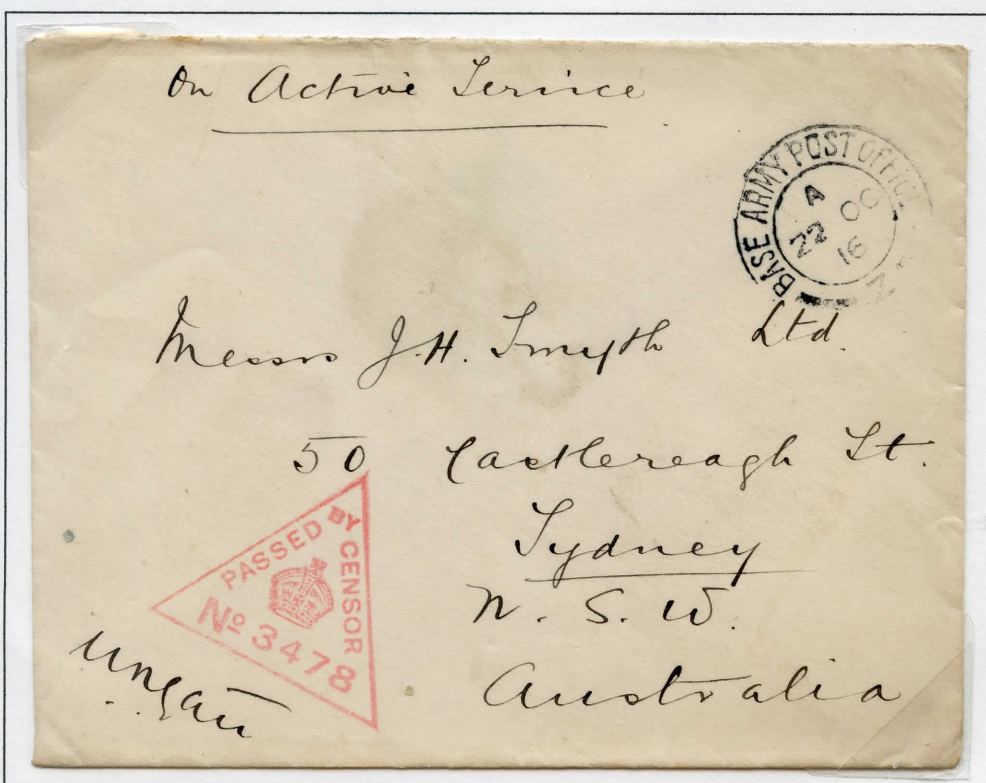 On Active Service
BASE ARMY POST OFFICE
A
22 OC
16
Z
Messrs J.H. Smyth Ltd.
50 Castlereagh St.
Sydney
N. S. W.
Australia
PASSED BY CENSOR
No 3478